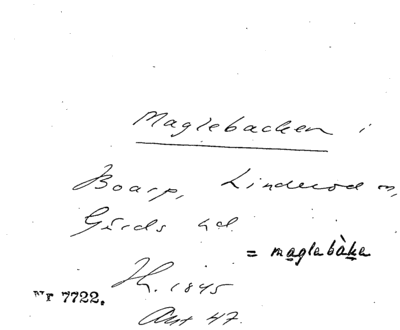 Maglebacken i
Boarp, Linderöd sn,
Gärds hd
= maglabàka
H. 1845
Ant 47.
Nr 7722.